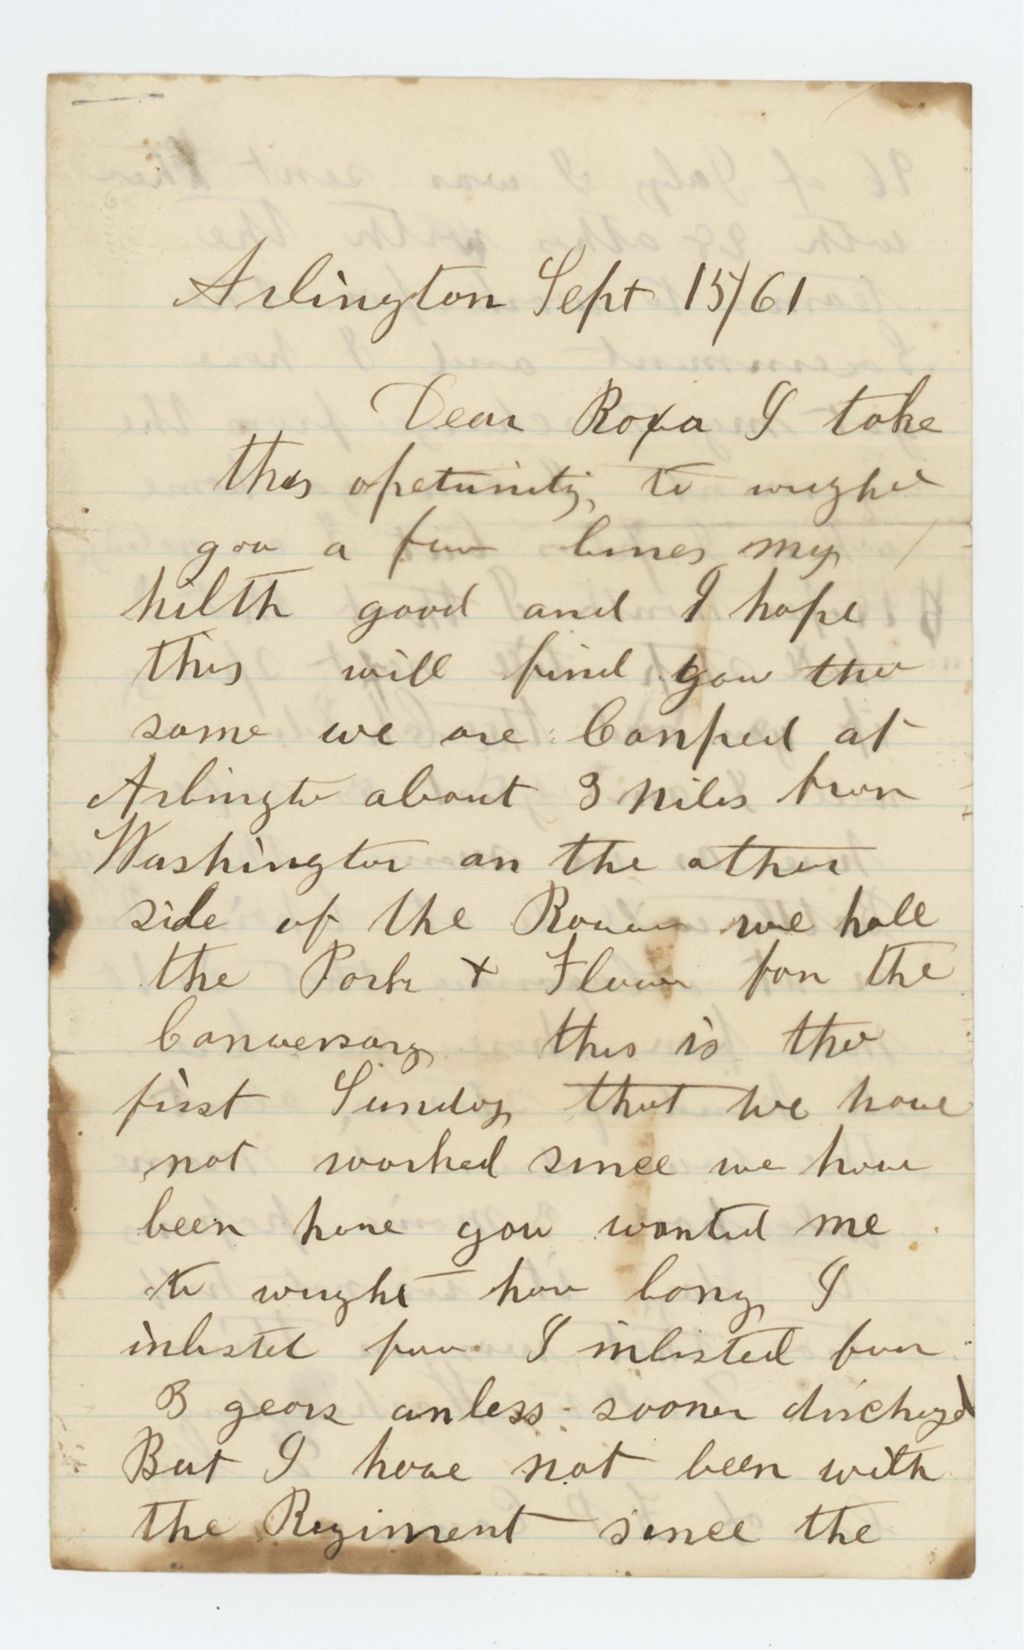 Arlington Sept 15/61
Dear Roxa I take
this opetunity to wright
you a fuw lines my
hilth good and I hope
this will find you the
same we are Camped at
Arlingto about 3 miles from
Washington on the other
side of the we hall
the Pork + Flower for the
this is the
first Sunday that we have
not worked since we have
been here you wanted me
to wright how long I
inlisted fur I inlisted fur
3 years unless sooner dischargd
But I have not been with
the Regiment since the